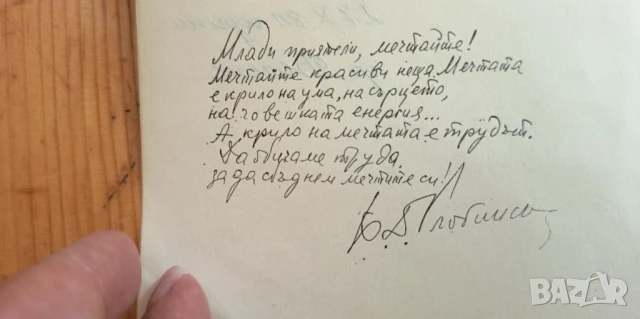 Млади приятели, мечтайте!
Мечтайте красиви неща. Мечтата
е крило на ума, на сърцето,
на човешката енергия...
А крило на мечтата е трудът.
Да обичаме труда,
за да сбъднем мечтите си!
BAZAR